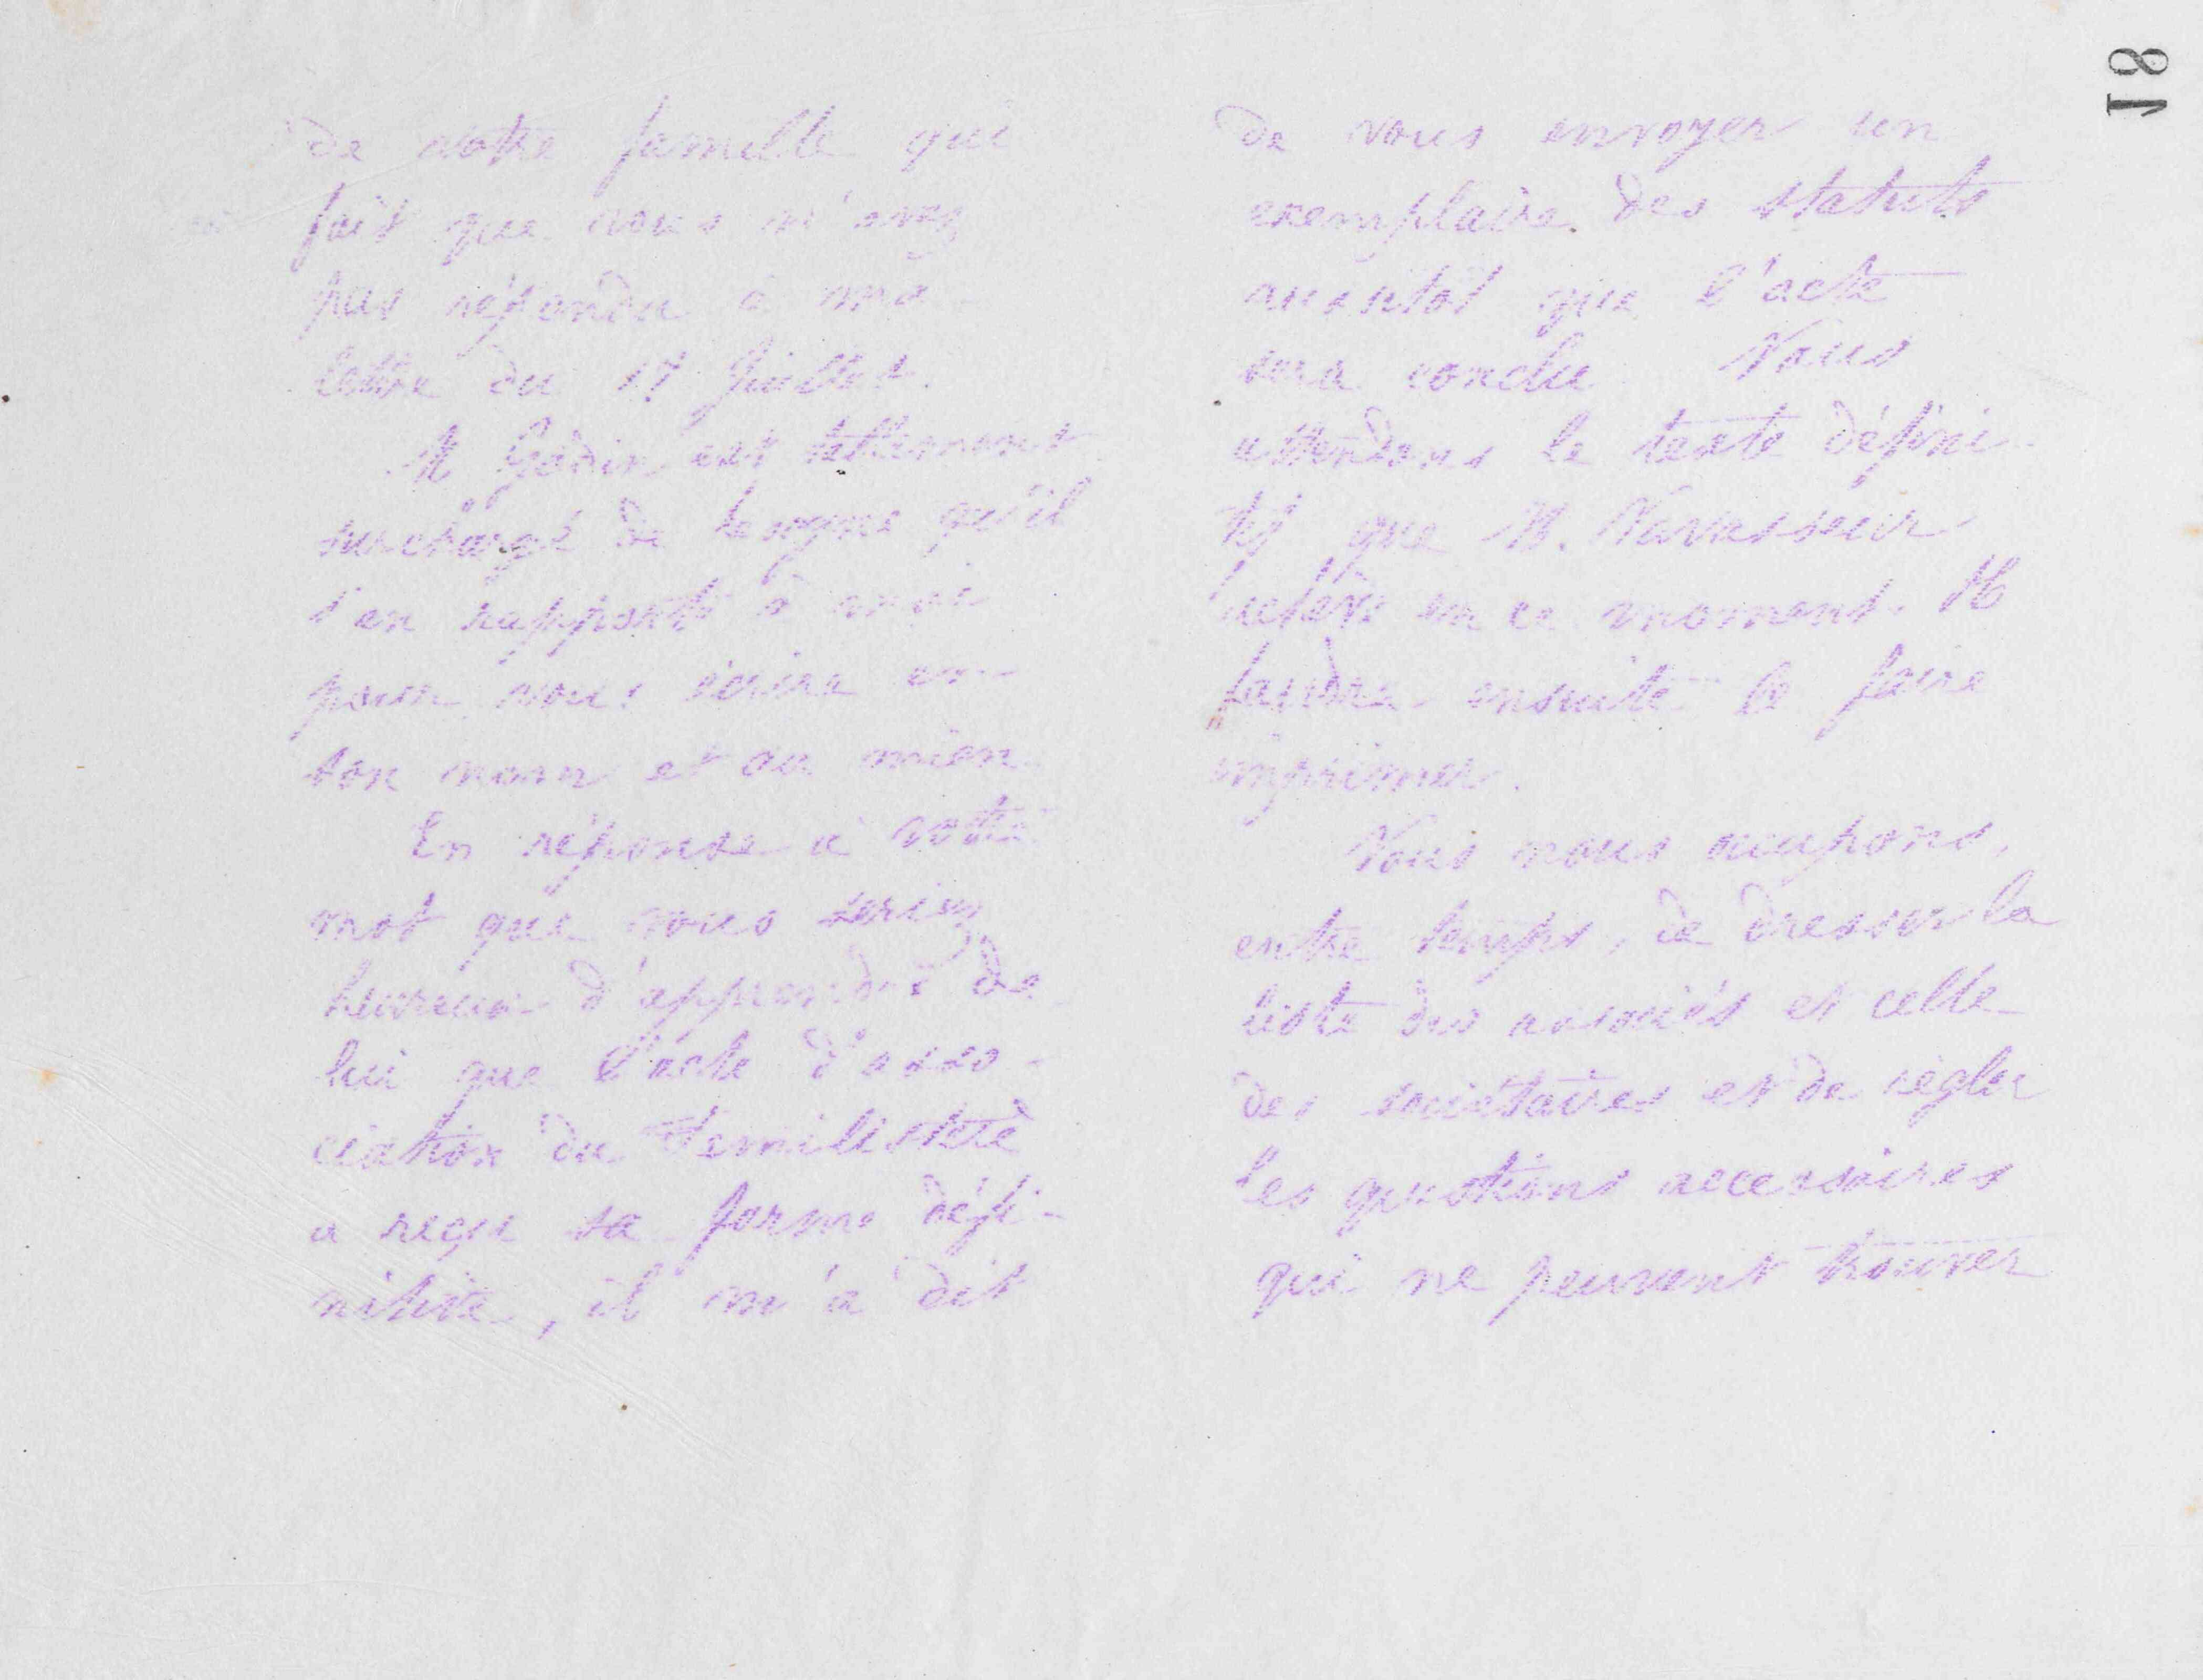 18
de votre famille qui
fait que vous n'avez
pas répondu à ma
lettre du 17 Juillet.
M Godin est tellement
surchargé de besogne qu'il
s'en rapporte à moi
pour vous écrire en
son nom et au mien
En réponse à votre
mot que vous seriez
heureux d'apprendre de
lui que l'acte d'asso-
ciation du Familistère
a reçu sa forme défi-
nitive, il m'a dit
de vous envoyer un
exemplaire des statuts
aussitôt que l'acte
sera conclu. Nous
attendons le texte défini-
tif que M. Vavasseur
achève en ce moment. Il
faudra ensuite le faire
imprimer.
Nous nous occupons,
entre temps, de dresser la
liste des associés et celle
des sociétaires et de régler
les questions accessoires
qui ne peuvent trouver